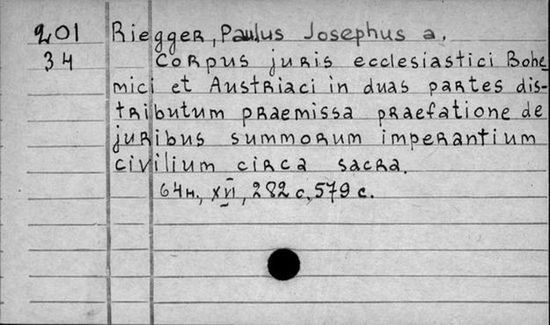 201 Riegger, Paulus Josephus a.
34 Corpus juris ecclesiastici Bohe-
mici et Austriaci in duas partes dis-
tributum praemissa praefatione de
juribus summorum imperantium
civilium circa sacra.
64н., XVI, 282 с., 579 с.